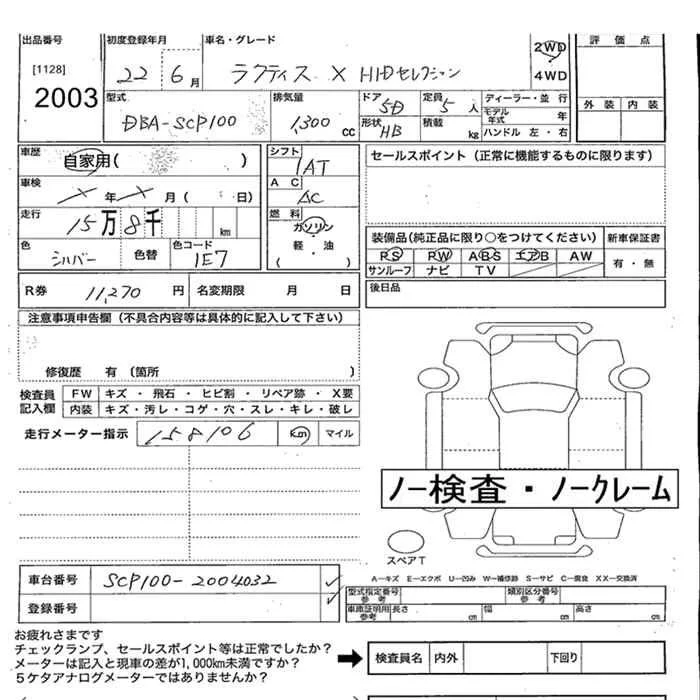 出品番号 初度登録年月 車名・グレード 評価点
[1128] 22年 6月 ラクティス X HIDセレクション 2WD
2003 4WD
型式 排気量 ドア 5D 定員 5人 ディーラー・並行 外装 内装
DBA-SCP100 1,300cc 形状 HB 積載 kg モデル年式 年
ハンドル 左・右
車歴 自家用( ) シフト 1AT セールスポイント (正常に機能するものに限ります)
車検 X年X月( 日) AC AC
走行 15万8千 km 燃料 ガソリン 装備品(純正品に限り○をつけてください) 新車保証書
色 シルバー 色替 色コード 1E7 軽・油 PS PW ABS エアB AW 有・無
( ) サンルーフ ナビ TV
R券 11,270円 名変期限 月 日 後日品
注意事項申告欄 (不具合内容等は具体的に記入して下さい)
修復歴 有 〔箇所 〕
検査員 FW キズ・飛石・ヒビ割・リペア跡・X要
記入欄 内装 キズ・汚レ・コゲ・穴・スレ・キレ・破レ
走行メーター指示 158106 km マイル
ノー検査・ノークレーム
スペアT
A-キズ E-エクボ U-凹み W-補修跡 S-サビ C-腐食 XX-交換済
車台番号 SCP100-2004032 型式指定番号 参考 類別区分番号 参考
登録番号 車庫証明用 参考 長さ cm 幅 cm 高さ cm
お疲れさまです
チェックランプ、セールスポイント等は正常でしたか?
メーターは記入と現車の差が1,000km未満ですか? 検査員名 内外 下回り
5ケタアナログメーターではありませんか?